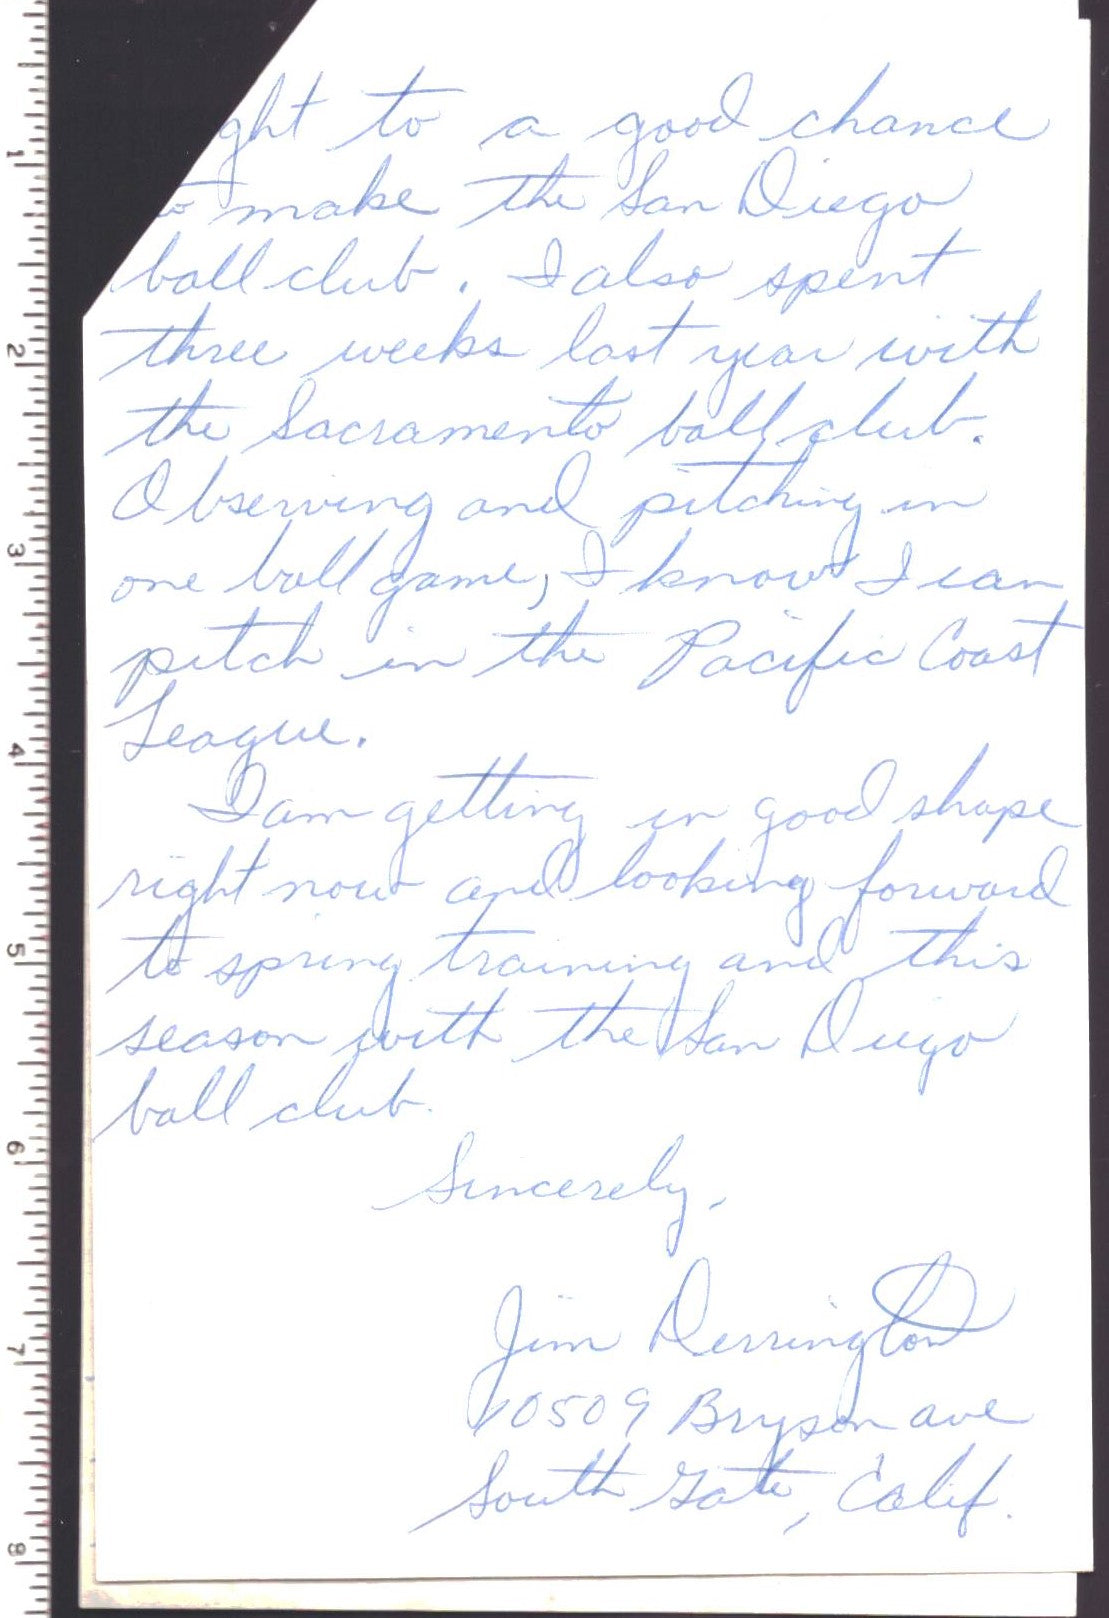 ght to a good chance
to make the San Diego
ball club. I also spent
three weeks last year with
the Sacramento ball club.
Observing and pitching in
one ball game, I know I can
pitch in the Pacific Coast
League.
I am getting in good shape
right now and looking forward
to spring training and this
season with the San Diego
ball club.
Sincerely,
Jim Derrington
10509 Bryson ave
South Gate, Calif.
1
2
3
4
5
6
7
8